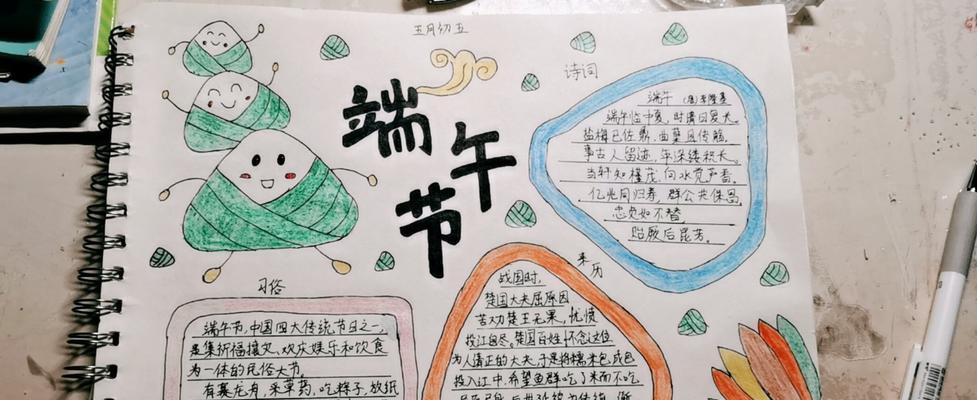 五月初五
端午节
诗词
端午 (唐)李隆基
端午临中夏,时清日复长。
盐梅已佐鼎,曲糵且传觞。
事古人留迹,年深缕积长。
当轩知槿茂,向水觉芦香。
亿兆同归寿,群公共保昌。
忠贞如不替,
贻厥后昆芳。
习俗
端午节,中国四大传统节日之一,
是集祈福攘灾、欢庆娱乐和饮食
为一体的民俗大节。
有赛龙舟,采草药,吃粽子,放纸
来历
战国时,
楚国大夫屈原因
苦劝楚王无果,忧愤
投江自尽。楚国百姓怀念这位
为人清正的大夫,于是将糯米包成包
投入江中,希望鱼群吃了米而不吃